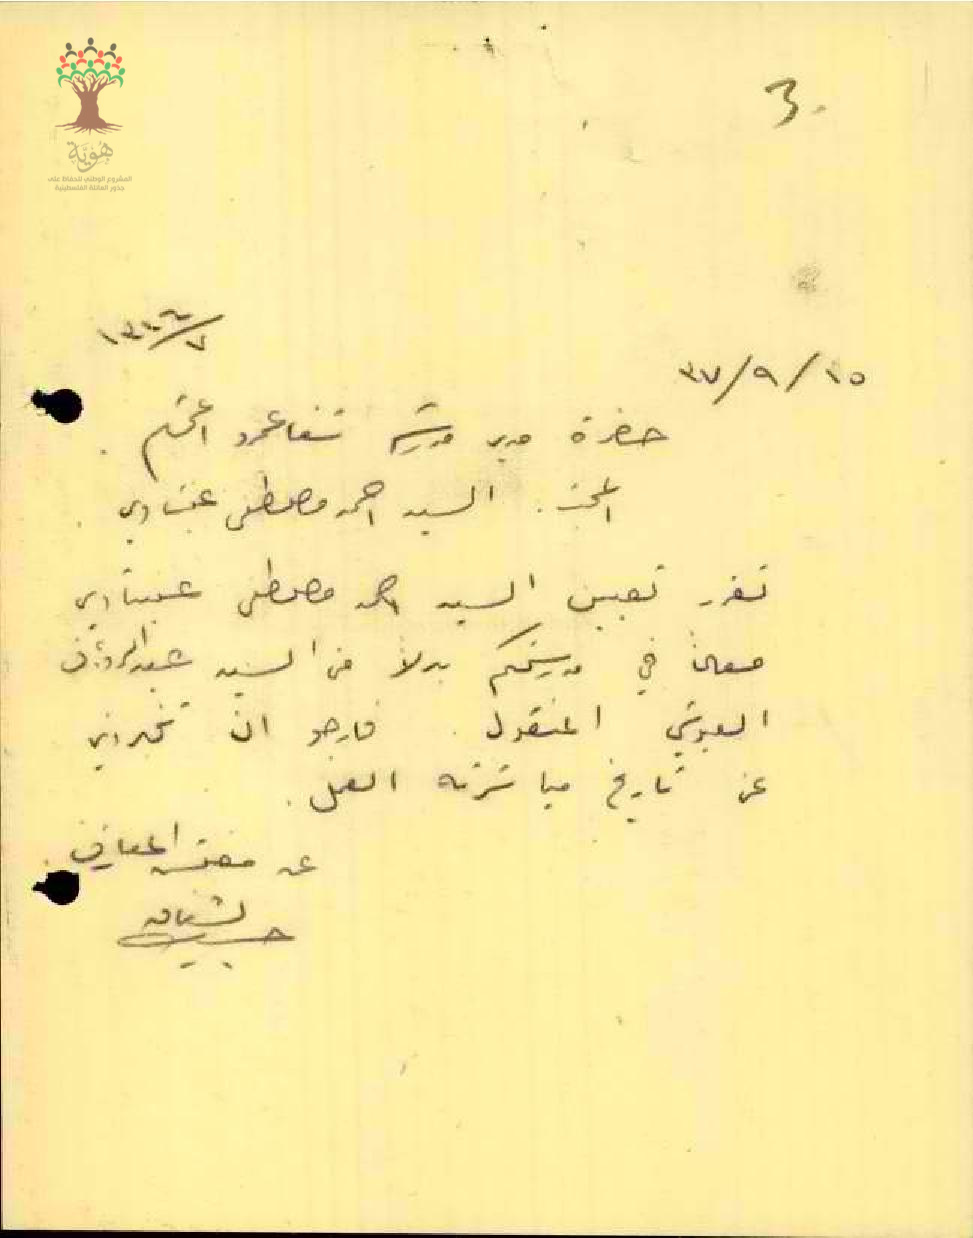 هُوِيَّة
المشروع الوطني للحفاظ على
جذور العائلة الفلسطينية
3
١٥/٩/٣٧
حضرة مدير مدرسة شفاعمرو المحترم
المبحث. السيد احمد مصطفى عبتاوي
تقرر تعيين السيد احمد مصطفى عبتاوي
معلما في مدرستكم بدلا من السيد عبد الرؤوف
المنقول. فارجو ان تخبروني
عن تاريخ مباشرته العمل.
عن مفتش المعارف